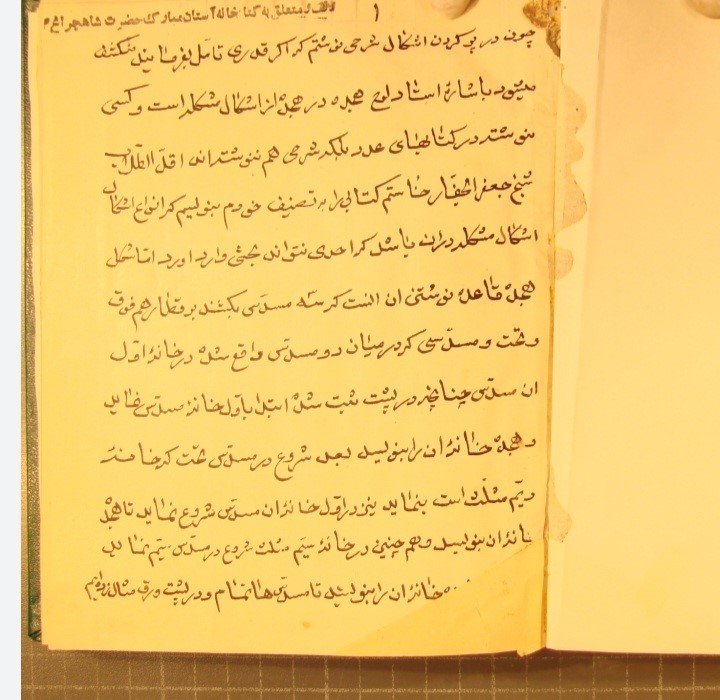 متعلق به کتابخانه آستان مبارک حضرت شاهچراغ
۱
چون در پر کردن اشکال شرحی نوشتم که اگر قدری تامل بفرمایند منکشف
میشود باشارهٔ استاد لوح هجده در هجده از اشکال مشکله است و کسی
ننوشته در کتابهای عدد بلکه شرحی هم ننوشته‌اند اقل الطلاب
شیخ جعفر الحقیر خواستم کتابی را به تصنیف خودم بنویسم که انواع اشکال
اشکال مشکله در آن باشد که احدی نتواند بحثی وارد اورد اما شکل
هجده قاعدهٔ نوشتن ان انست که سه مسدس بکشند بر قطار هم فوق
و تحت و مسدسی که در میان دو مسدس واقع شده در خانهٔ اول
ان مسدس چنانچه در پشت ثبت شده ابتدا باول خانهٔ مسدس نماید
و هجده خانهٔ ان را بنویسد بعد شروع در مسدس تحت که خانهٔ
دیم مثلث است بنماید یعنی در اول خانهٔ ان مسدس شروع نماید تا هجده
خانهٔ ان بنویسد و همچنین در خانهٔ سیم مثلث شروع در مسدس سیم نماید
خانهٔ ان را بنویسد تا مسدس‌ها تمام و در پشت ورق مثال زده‌ایم